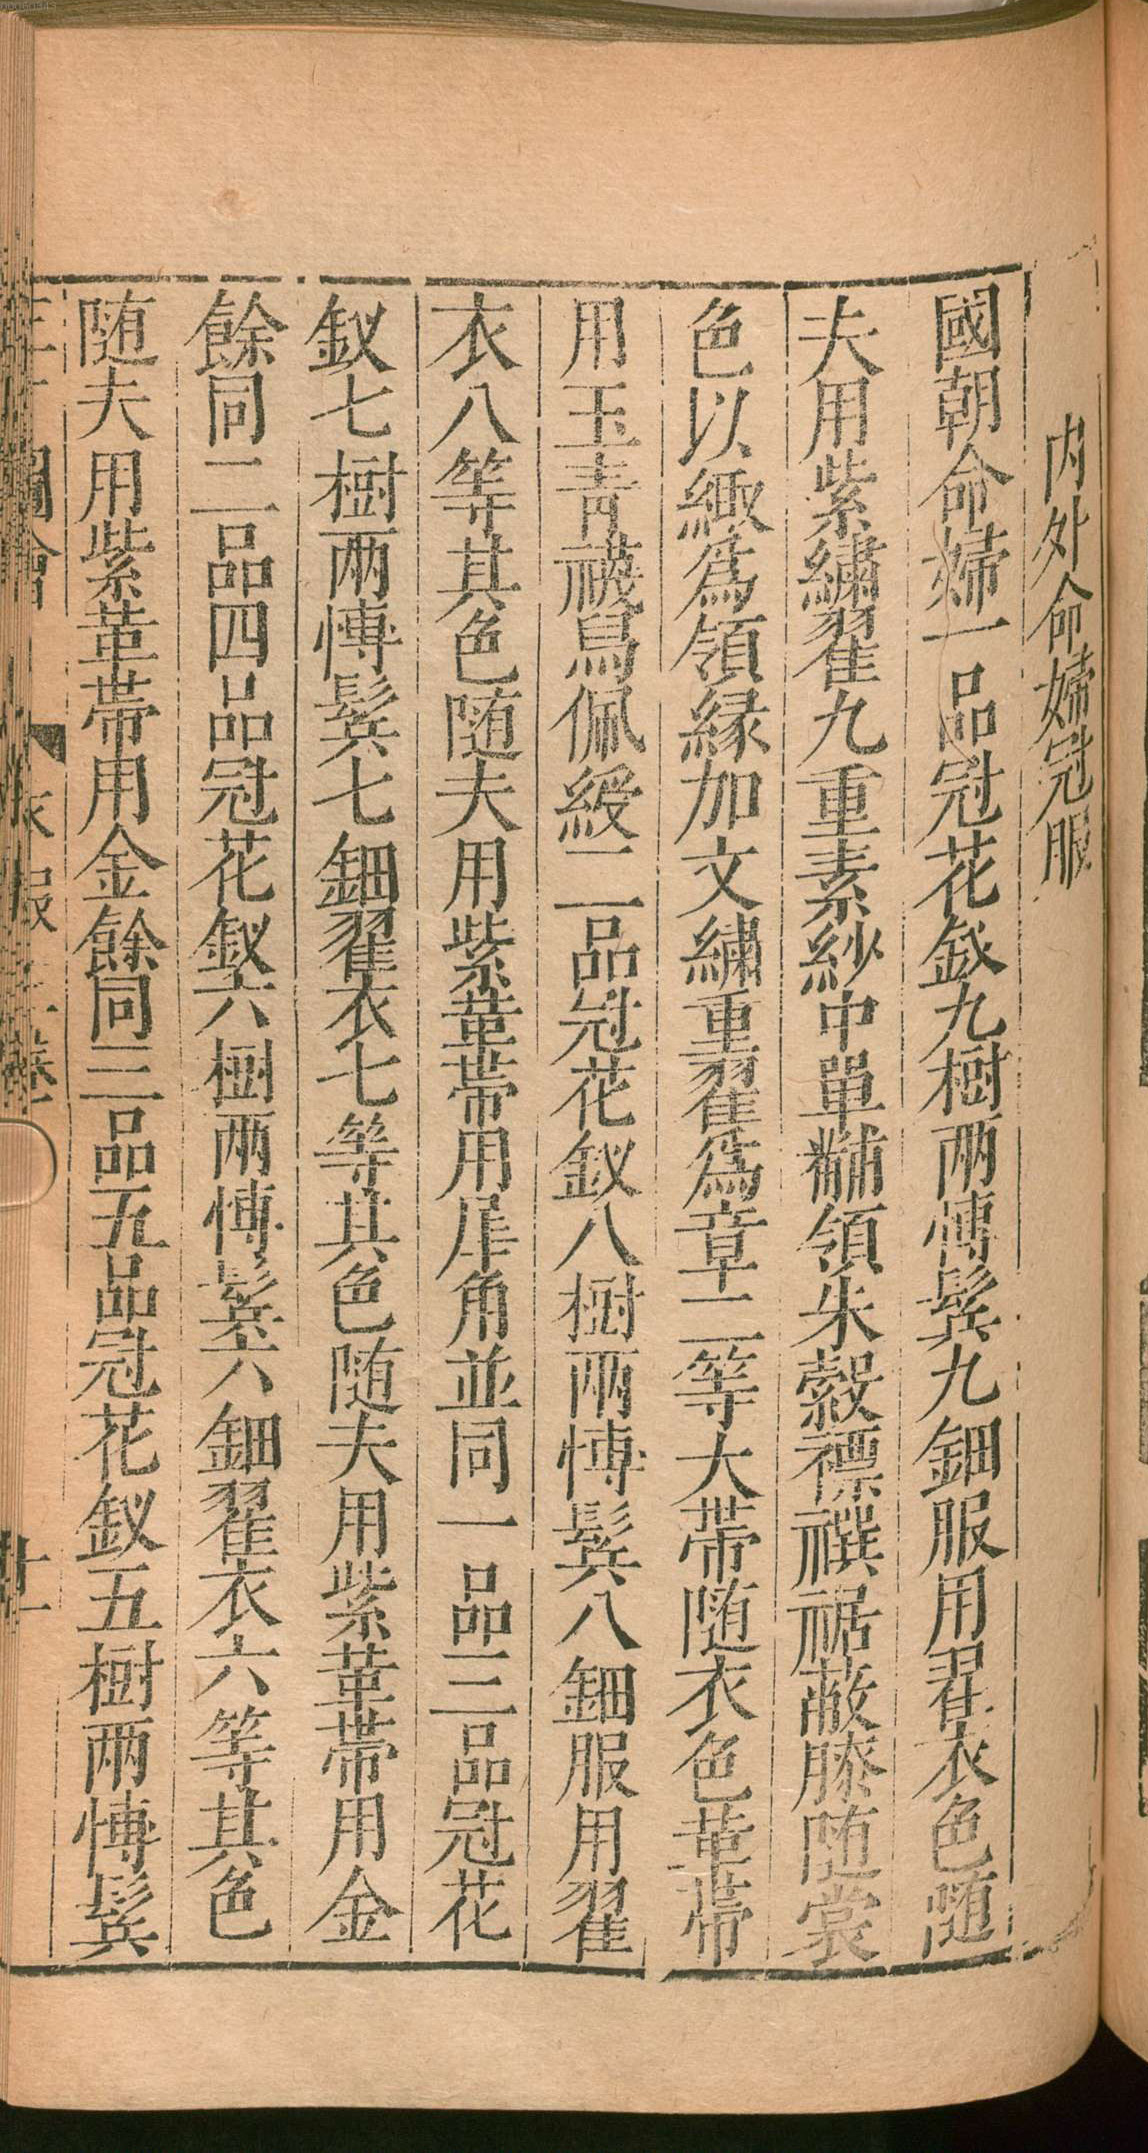 内外命婦冠服
國朝命婦一品冠花釵九樹兩愽鬓九鈿服用翟衣色随
夫用紫繡翟九重素紗中單黼領朱縠褾襈裾蔽膝随裳
色以緅爲領縁加文繡重翟爲章二等大帶随衣色革帶
用玉青襪舄佩綬二品冠花釵八樹兩愽鬓八鈿服用翟
衣八等其色随夫用紫革帶用犀角並同一品三品冠花
釵七樹兩愽鬓七鈿翟衣七等其色随夫用紫革帶用金
餘同二品四品冠花釵六樹兩愽鬓六鈿翟衣六等其色
随夫用紫革帶用金餘同三品五品冠花釵五樹兩愽鬓
圖會
衣服